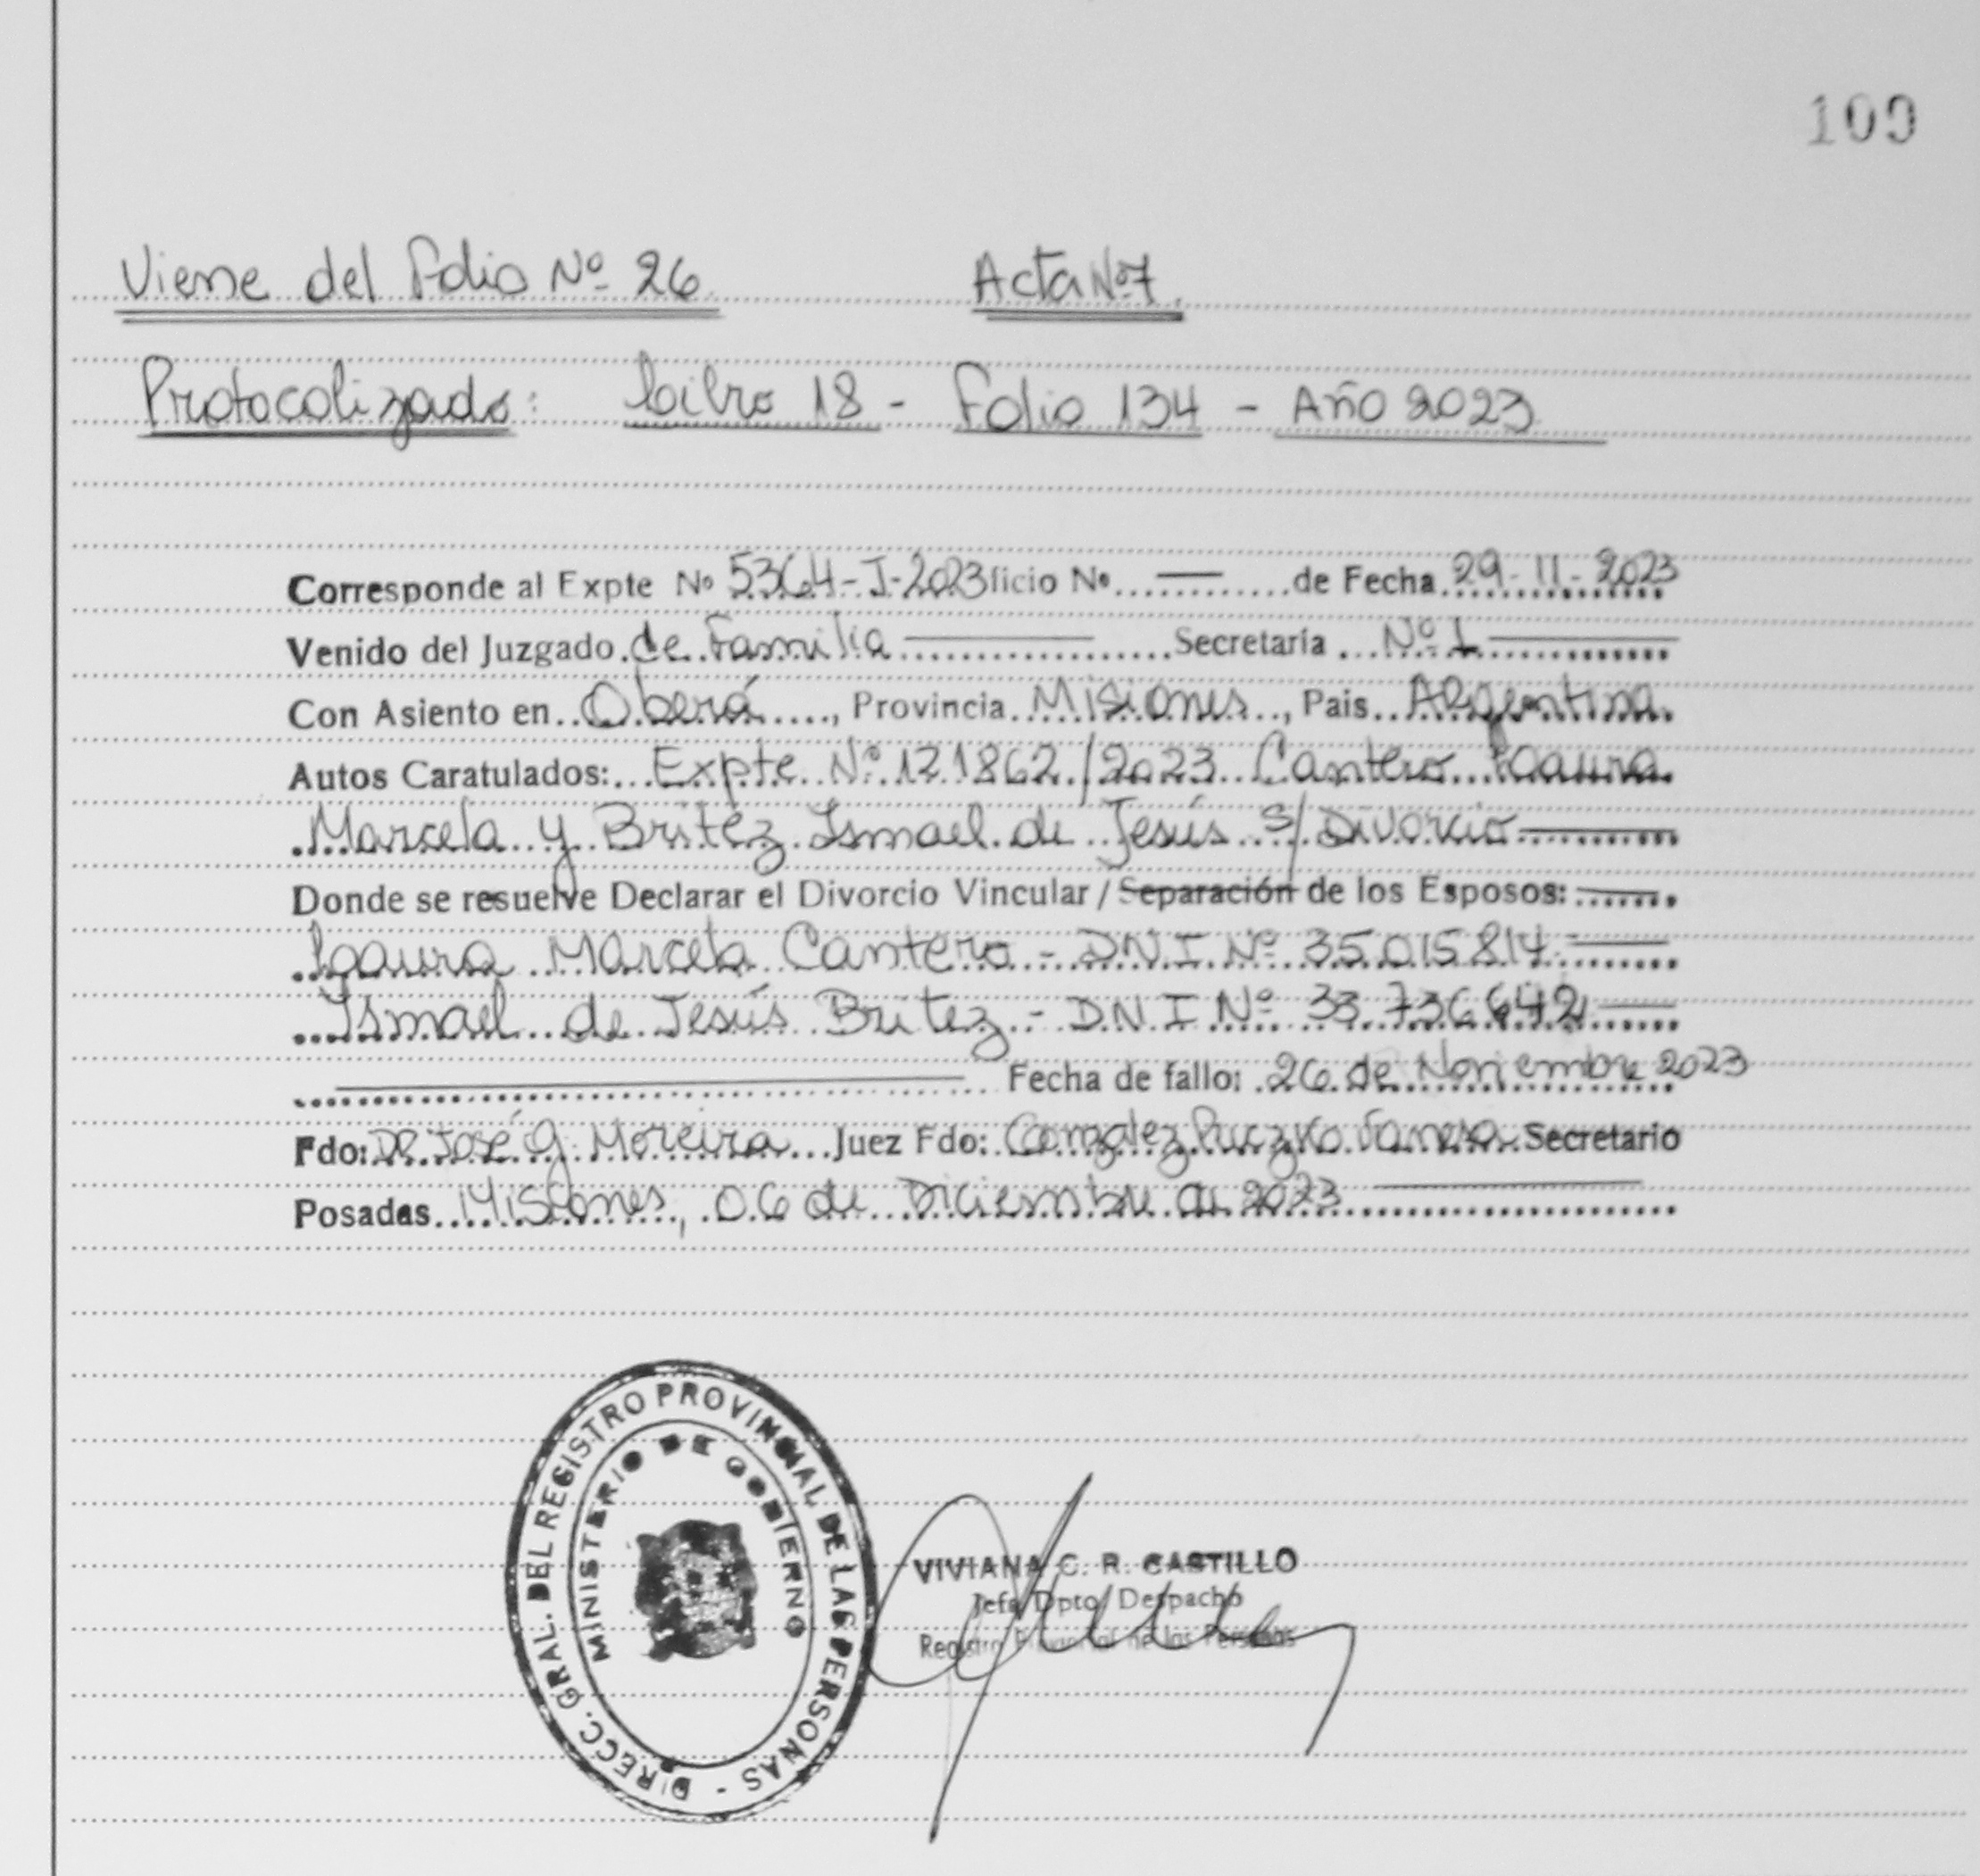 100
Viene del Folio Nº 26. Acta Nº7.
Protocolizado: Libro 18 - Folio 134 - Año 2023
Corresponde al Expte Nº 5364-J-2023 ficio Nº ... — ... de Fecha 29-11-2023
Venido del Juzgado de Familia Secretaria Nº 1
Con Asiento en Oberá, Provincia Misiones, Pais Argentina.
Autos Caratulados: Expte Nº 121862/2023 Cantero Laura
Marcela y Britez Ismael de Jesús s/ Divorcio
Donde se resuelve Declarar el Divorcio Vincular / Separación de los Esposos:
Laura Marcela Cantero - D.N.I. Nº 35.015.814
Ismael de Jesús Britez - D.N.I Nº 33.736.642
Fecha de fallo: 26 de Noviembre 2023
Fdo: Dr José G. Moreira Juez Fdo: Gonzalez Vanesa Secretario
Posadas Misiones, 06 de Diciembre de 2023
DIRECC. GRAL. DEL REGISTRO PROVINCIAL DE LAS PERSONAS -
MINISTERIO DE GOBIERNO
VIVIANA C. R. CASTILLO
Jefa Dpto Despacho
Registro Provincial de las Personas